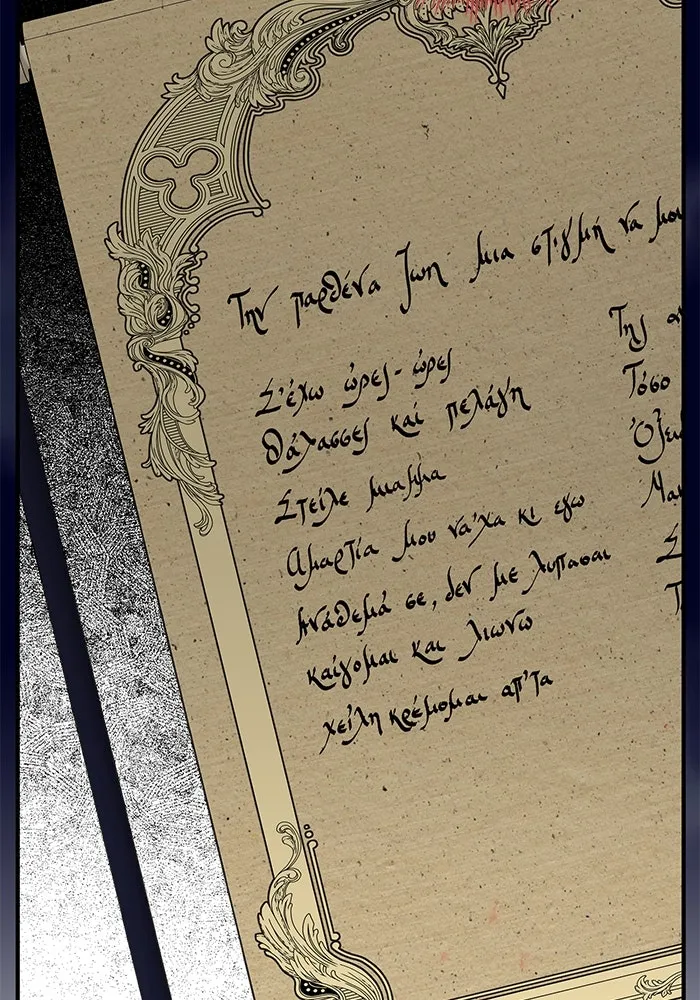 Την παρθένα ζωη μια στιγμή να μου
Σ'έχω ώρες-ώρες
θάλασσες και πελάγη
Στείλε μιαμμα
αμαρτία μου να'χα κι εγω
Ανάθεμά σε, δεν με λυπασαι
καίγομαι και λιωνω
χείλη κρέμομαι απ'τα
Της
Τόσο